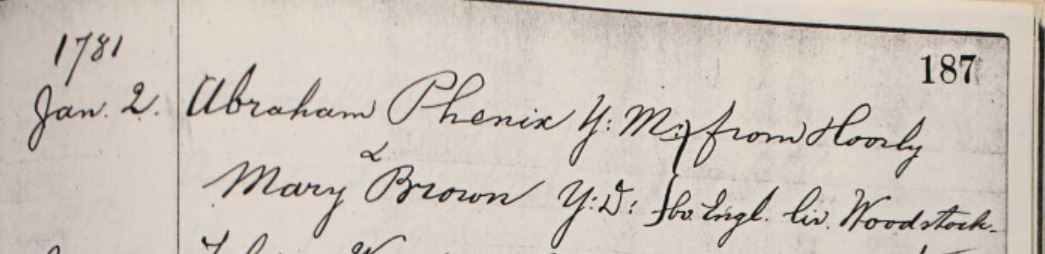 1781
187
Jan. 2. Abraham Phenix Y: M: } from Hoorly
&
Mary Brown Y: D: } bo. Engl. liv. Woodstock.